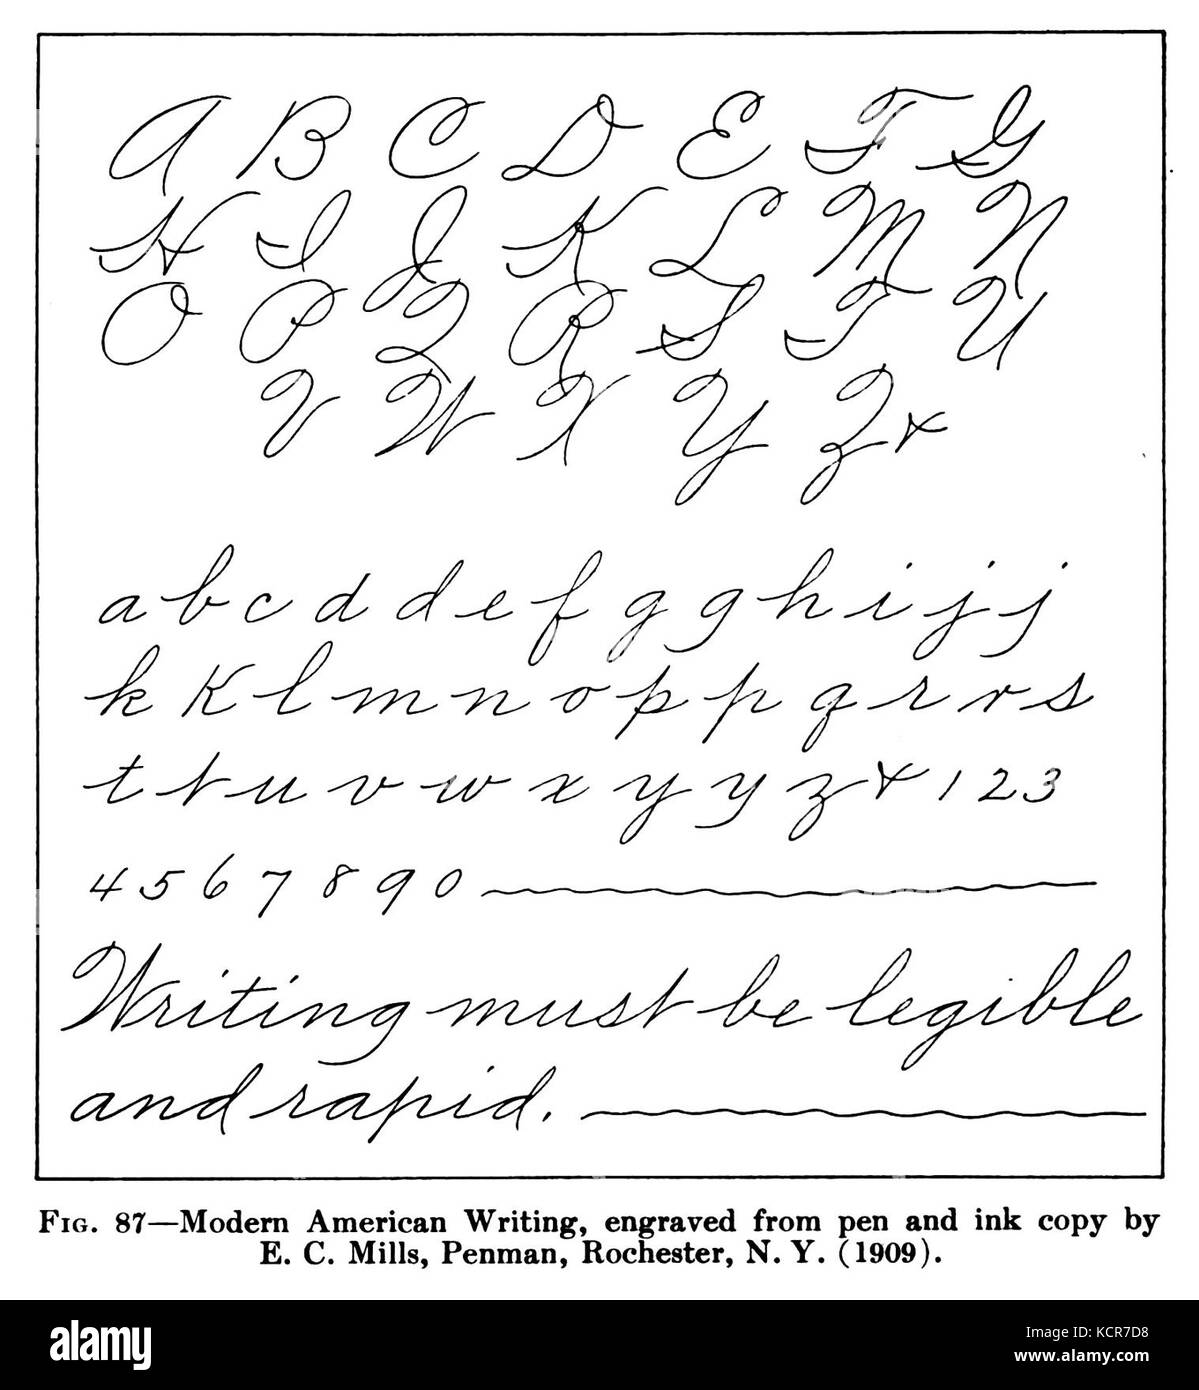 A B C D E F G
H I J K L M N
O P Q R S T U
V W X Y Z &
a b c d d e f g g h i j j
k k l m n o p p q r r s
t t u v w x y y z & 1 2 3
4 5 6 7 8 9 0
Writing must be legible
and rapid.
FIG. 87—Modern American Writing, engraved from pen and ink copy by
E. C. Mills, Penman, Rochester, N. Y. (1909).
alamy
Image ID: KCR7D8
www.alamy.com